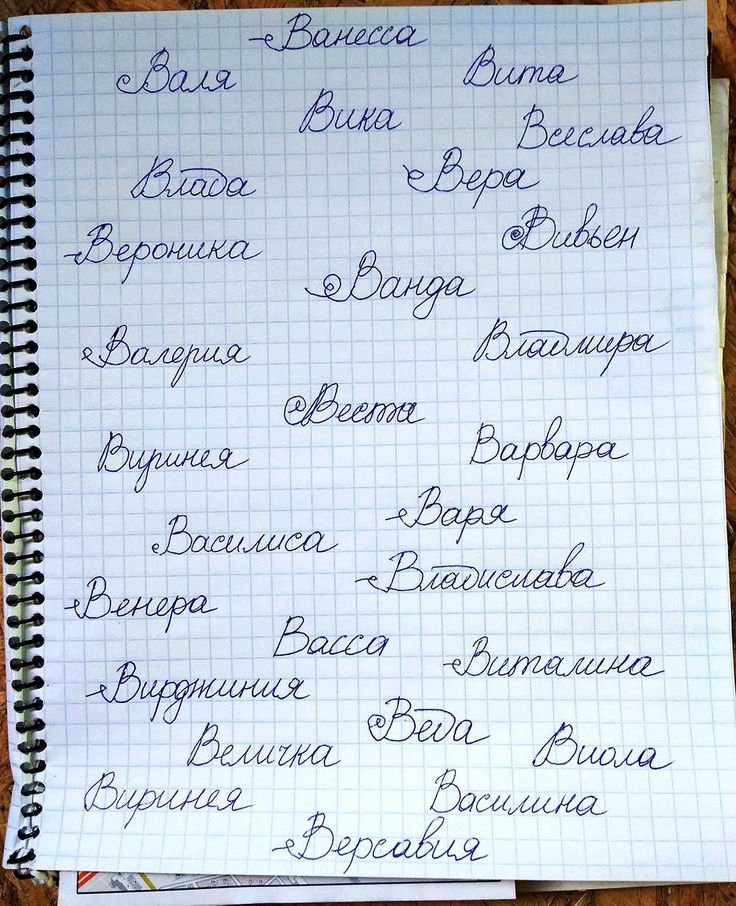 Ванесса
Валя
Вита
Вика
Всеслава
Влада
Вера
Вероника
Вивьен
Ванда
Валерия
Владмира
Веста
Виринея
Варвара
Варя
Василиса
Владислава
Венера
Васса
Виталина
Вирджиния
Веда
Величка
Виола
Виринея
Василина
Версавия